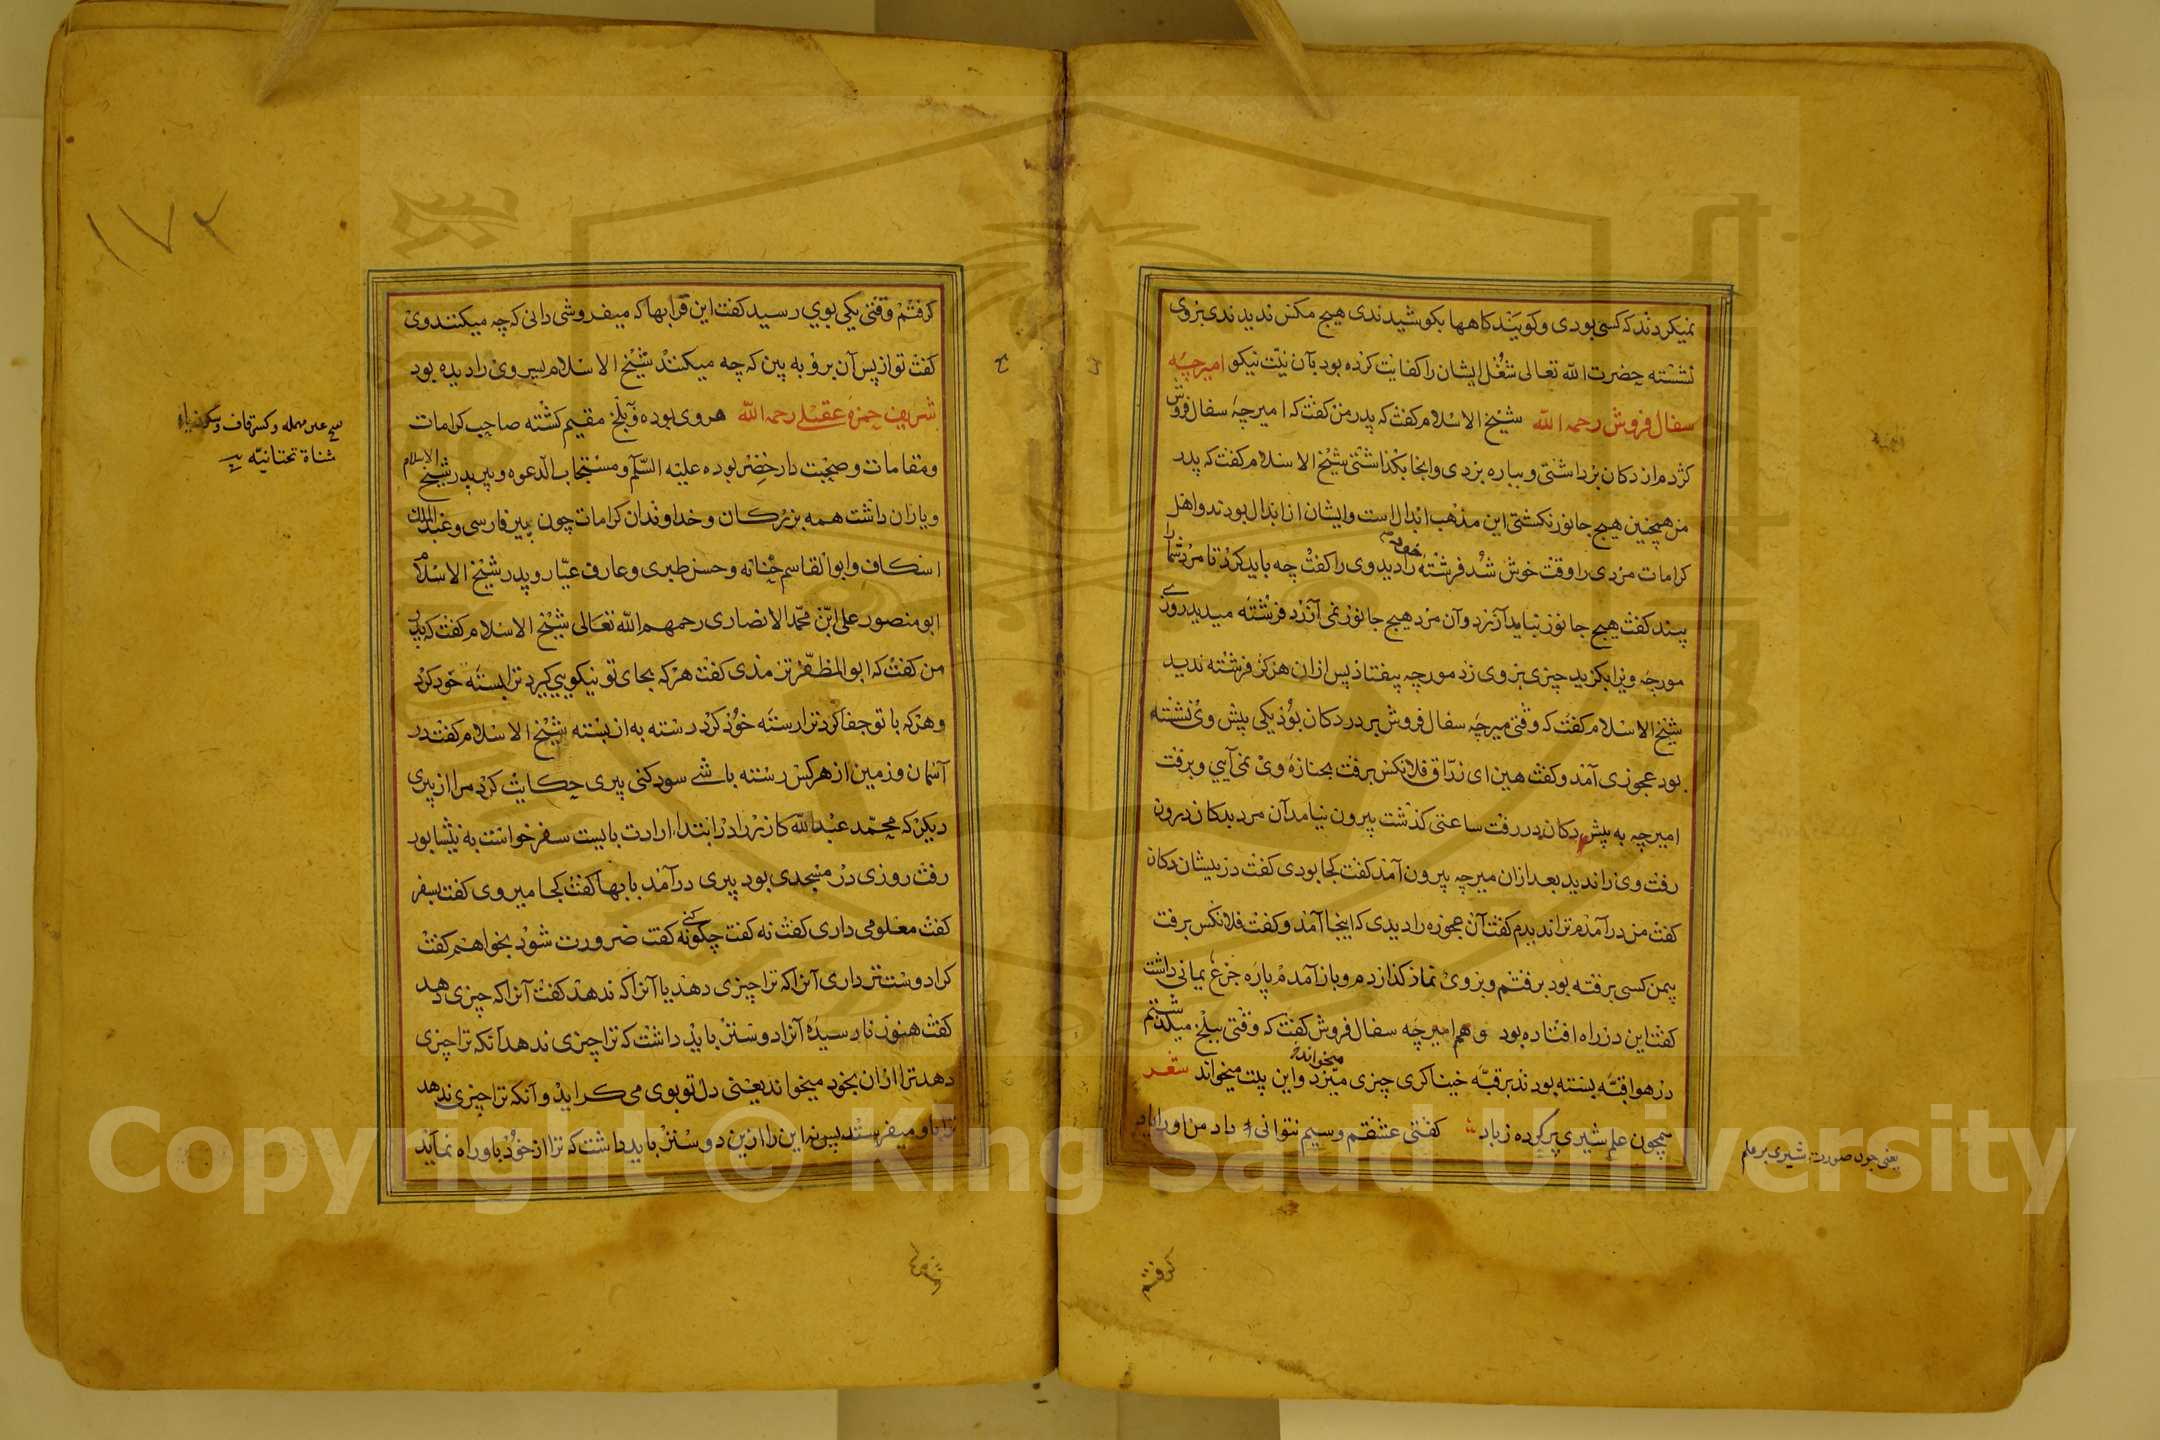 نمیکردند که کسی بودی وکویندکاهها بکوشیدندی هیچ مکس ندیدندی بروی
نشسته حضرت الله تعالی شغل ایشان را کفایت کرده بود بآن نیت نیکو امیرچه
سفال فروش رحمه الله شیخ الاسلام کفت که پدر من کفت که امیرچه سفال فروش
کژدم از دکان برداشتی وبباره بردی وانجا بکذاشتی شیخ الاسلام کفت که پدر
من هیچنین هیچ جانور نکشتی این مذهب ابدال است وایشان از ابدال بودند واهل
کرامات مردی را وقت خوش شد فرشته را دید وی را کفت چه باید کرد تا مرد شما را
بیند کفت هیچ جانور نباید آزرد وآن مرد هیچ جانور نمی آزرد فرشته میدید روزی
مورچه ویرا بکزید چیزی بروی زد مورچه بیفتاد پس ازان هرکز فرشته ندید
شیخ الاسلام کفت که وقتی میرچه سفال فروش بر در دکان بود یکی پیش وی نشسته
بود عجوزی آمد وکفت هین ای زراق فلانکس برفت بجنازه وی نمی آیی وبرفت
امیرچه به پیش دکان در رفت ساعتی کذشت بیرون نیامد آن مرد بدکان درون
رفت وی را ندید بعد ازان میرچه بیرون آمد کفت کجا بودی کفت در بیشان دکان
کفت من درآمدم ترا ندیدم کفت آن عجوزه را دیدی که اینجا آمد وکفت فلانکس برفت
بیمن کسی برفته بود برفتم وبروی نماز کذاردم وباز آمدم پاره جزع یمانی داشت
کفت این در راه افتاده بود وهم امیرچه سفال فروش کفت که وقتی ببلخ میکذشتم
در هوا قبه بسته بودند بر قبه خنیاکری چیزی میزد واین بیت میخواند شعر
همچون علم شیری پر کرده زباد کفتی عشقم وسیم نتوانی داد من اورا یاد
یعنی چون صورت شیری بر علم
کرفتم
کرفتم وقتی یکی بوی رسید کفت این قرابها که میفروشی دانی که چه میکنند وی
کفت تو از پس آن برو به بین که چه میکنند شیخ الاسلام پیر وی را دیده بود
شریف حمزه عقیلی رحمه الله هروی بوده وببلخ مقیم کشته صاحب کرامات
ومقامات وصحبت دار خضر بوده علیه السلم ومستجاب الدعوه وپیر پدر شیخ الاسلام
ویاران داشت همه بزرکان وخداوندان کرامات چون پیر فارسی وعبدالملک
اسکاف وابوالقاسم حنانه وحسن طبری وعارف عیار وپدر شیخ الاسلام
ابومنصور علی ابن محمد الانصاری رحمهم الله تعالی شیخ الاسلام کفت که پدر
من کفت که ابوالمظفر ترمذی کفت هرکه بجای تو نیکویی کیرد ترا بسته خود کرد
وهرکه با تو جفا کرد ترا رسته خود کرد رسته به از بسته شیخ الاسلام کفت در
آسمان وزمین از هرکس رسته باشی سود کنی پیری حکایت کرد مرا از پیری
دیکر که محمد عبدالله کازر را در ابتداء ارادت بایست سفر خواست به نیشابور
رفت روزی در مسجدی بود پیری درآمد با بها کفت کجا میروی کفت بسفر
کفت معلومی داری کفت نه کفت چکونه کنی کفت ضرورت شود بخواهم کفت
کرا دوستتر داری آنرا که ترا چیزی دهد یا آنرا که ندهد کفت آنرا که چیزی دهد
کفت هنوز نارسیده آنرا دوستتر باید داشت که ترا چیزی ندهد آنکه ترا چیزی
دهد ترا ازان بخود میخواند یعنی دل تو بوی می کراید وآنکه ترا چیزی ندهد
ترا باو میفرستد پس نه این را ازین دوستتر باید داشت که ترا از خود باو راه نماید
١٧٢
بفتح عین مهمله وکسر قاف وسکون یاء
مثناة تحتانیه
Copyright © King Saud University